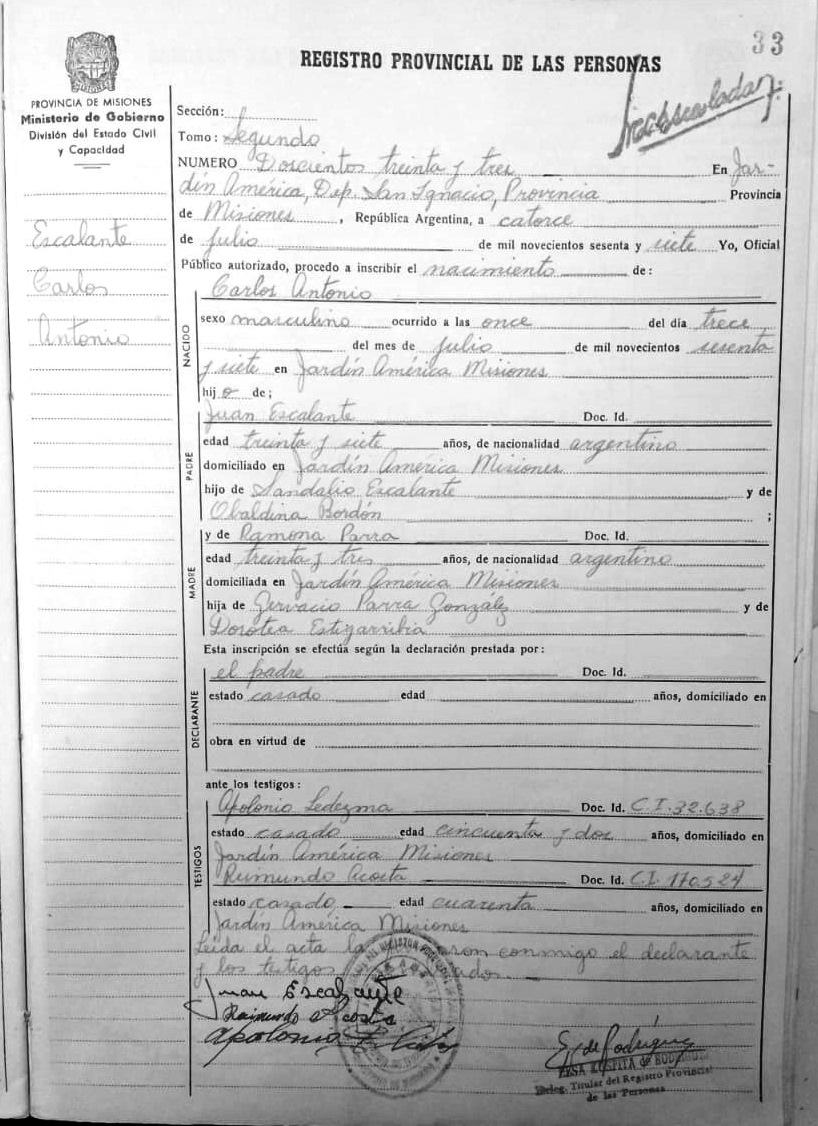 33
REGISTRO PROVINCIAL DE LAS PERSONAS
PROVINCIA DE MISIONES
Ministerio de Gobierno
División del Estado Civil
y Capacidad
Escalante
Carlos
Antonio
Sección:
Tomo: Segundo
NUMERO Doscientos treinta y tres En Jar-
dín América, Dep. San Ignacio, Provincia Provincia
de Misiones, República Argentina, a catorce
de julio de mil novecientos sesenta y siete Yo, Oficial
Público autorizado, procedo a inscribir el nacimiento de:
NACIDO
Carlos Antonio
sexo masculino ocurrido a las once del día trece
del mes de julio de mil novecientos sesenta
y siete en Jardín América Misiones
hijo de;
PADRE
Juan Escalante Doc. Id.
edad treinta y siete años, de nacionalidad argentino
domiciliado en Jardín América Misiones
hijo de Sandalio Escalante y de
Obaldina Bordón ;
MADRE
y de Ramona Parra Doc. Id.
edad treinta y tres años, de nacionalidad argentino
domiciliada en Jardín América Misiones
hija de Gervacio Parra González y de
Dorotea Estigarribia
Esta inscripción se efectúa según la declaración prestada por:
DECLARANTE
el padre Doc. Id.
estado casado edad años, domiciliado en
obra en virtud de
ante los testigos:
TESTIGOS
Apolonio Ledezma Doc. Id. C.I. 32.638
estado casado edad cincuenta y dos años, domiciliado en
Jardín América Misiones
Rumundo Acosta Doc. Id. C.I. 170.524
estado casado edad cuarenta años, domiciliado en
Jardín América Misiones
Leida el acta la conmigo el declarante
y los testigos
Juan Escalante
Raimundo Acosta
Apolonio
E. de Rodríguez
Deleg. Titular del Registro Provincial
de las Personas